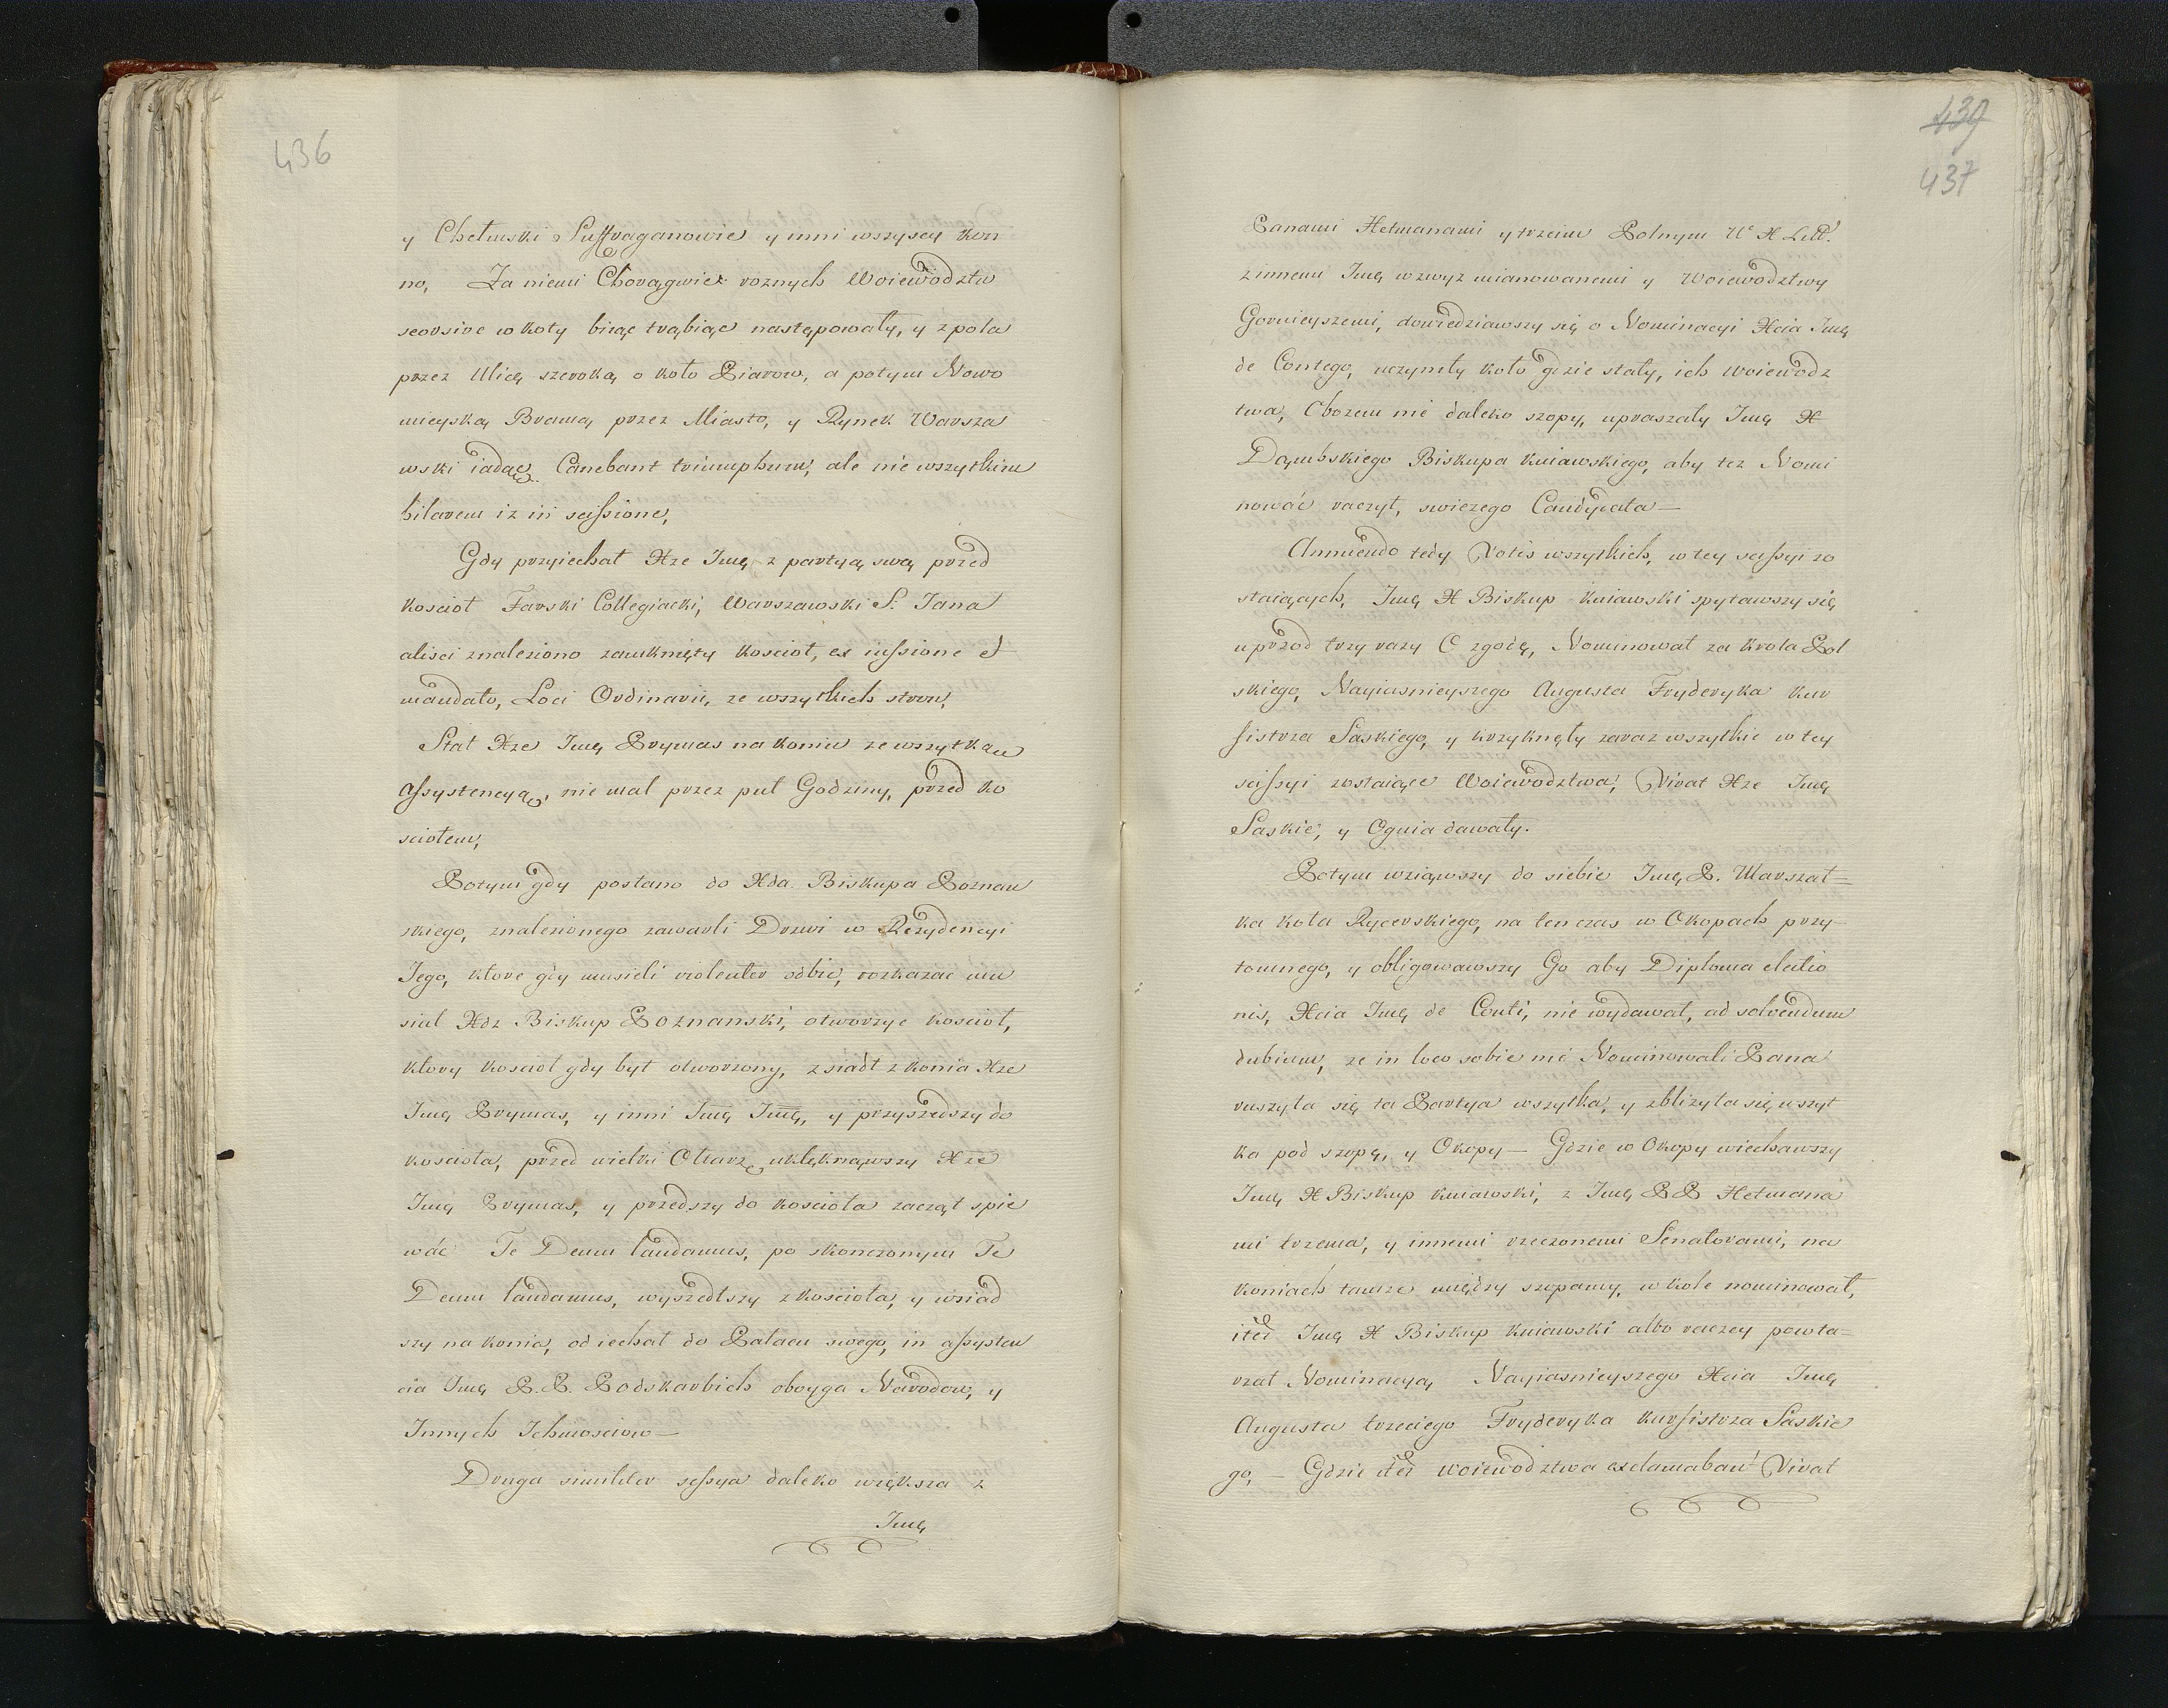 436
y Chełmski Suffraganowie y inni wszyscy kon
no, Za niemi Chorągwiez roznych Woiewodztw
seorsive w koły biiąc trąbiąc następowały, y z pola
przez Ulicę szeroką o koło Piarow, a potym Nowo
mieyską Bramą przez Miasto, y Rynek Warsza
wski iadąc. Canebant triumphum, ale nie wszytkim
hilarem iz in scissione,
Gdy przyiechał Xze Jmę z partyą swą przed
Kosciot Farski Collegiacki, Warszawski S. Jana
alisci znaleziono zamknięty Kosciot, ex iussione et
mandato, Loci Ordinarii, ze wszytkich stron,
Stał Xze Jmę Prymas na koniu ze wszytkąu
assystencyą, nie mal przez puł Godziny, przed ko
sciołem,
Potym gdy posłano do Xda. Biskupa Poznan
skiego, znalezionego zawarli Drzwi w Rezydencyi
Jego, ktore gdy musieli violenter odbic, rozkazac mu
sial Xdz Biskup Poznanski, otworzyc kosciot,
ktory kosciot gdy był otworzony, zsiadł z konia Xze
Jmę Prymas, y inni Jmę Jmę, y przyszedszy do
kosciota, przed wielki Ołtarz, uklęknąwszy Xze
Jmę Prymas, y przedszy do kosciota zacząt spie
wać Te Deum laudamus, po skonczonym Te
Deum laudamus, wyszedtszy z kosciota, y wsiad
szy na konia, od iechał do Pałacu swego, in assysten
cia Jmę P.P. Podskarbich oboyga Narodow, y
Innych Ichmosciow—
Druga similiter sessya daleko większa z
Jmę
439
437
Panami Hetmanami y trzeim Polnym W X Litt.
z innemi Jmę wzwyz mianowanemi y Woiewodztwy
Gornieyszemi, dowiedziawszy się o Nominacyi Xcia Jmę
de Contego, uczyniły koło gdzie stały, ich woiewodz
twa, Obozem nie daleko szopy, upraszały Jmę X
Dąmbskiego Biskupa kuiawskiego, aby tez Nomi
nować raczyt, swiezego Candydata—
Annuendo tedy Votis wszytkich, w tey scissyi zo
staiących, Jmę X Biskup kuiawski spytawszy się
uprzod trzy razy O zgodę, Nominował za krola Pol
skiego, Nayiasnieyszego Augusta Fryderyka kur
fistrza Saskiego, y krzyknęły zaraz wszytkie w tey
scissyi zostaiące Woiewodztwa, Vivat Xze Jmę
Saskie, y Ognia dawały.
Potym wziąwszy do siebie Jmę P. Marszał=
ka koła Rycerskiego, na ten czas w Okopach przy-
tomnego, y obligowawszy Go aby Diploma electio
nis, Xcia Jmę de Conti, nie wydawał, ad solvendum
dubium, ze in loco sobie nie Nominowali Pana
ruszyła się ta Partya wszytka, y zblizyła się wszyt
ka pod szopę, y Okopy— Gdzie w Okopy wiechawszy
Jmę X Biskup kuiawski, z Jmę P P Hetmana
mi trzema, y innemi rzeczonemi Senatorami, na
koniach tamze między szopamy, w kole nominował,
itez Jmę X Biskup kuiawski albo raczey powta=
rzał Nominacyą Nayiasnieyszego Xcia Jmę
Augusta trzeciego Fryderyka kurfistrza Saskie
go,— Gdzie itez woiewodztwa exclamabant Vivat